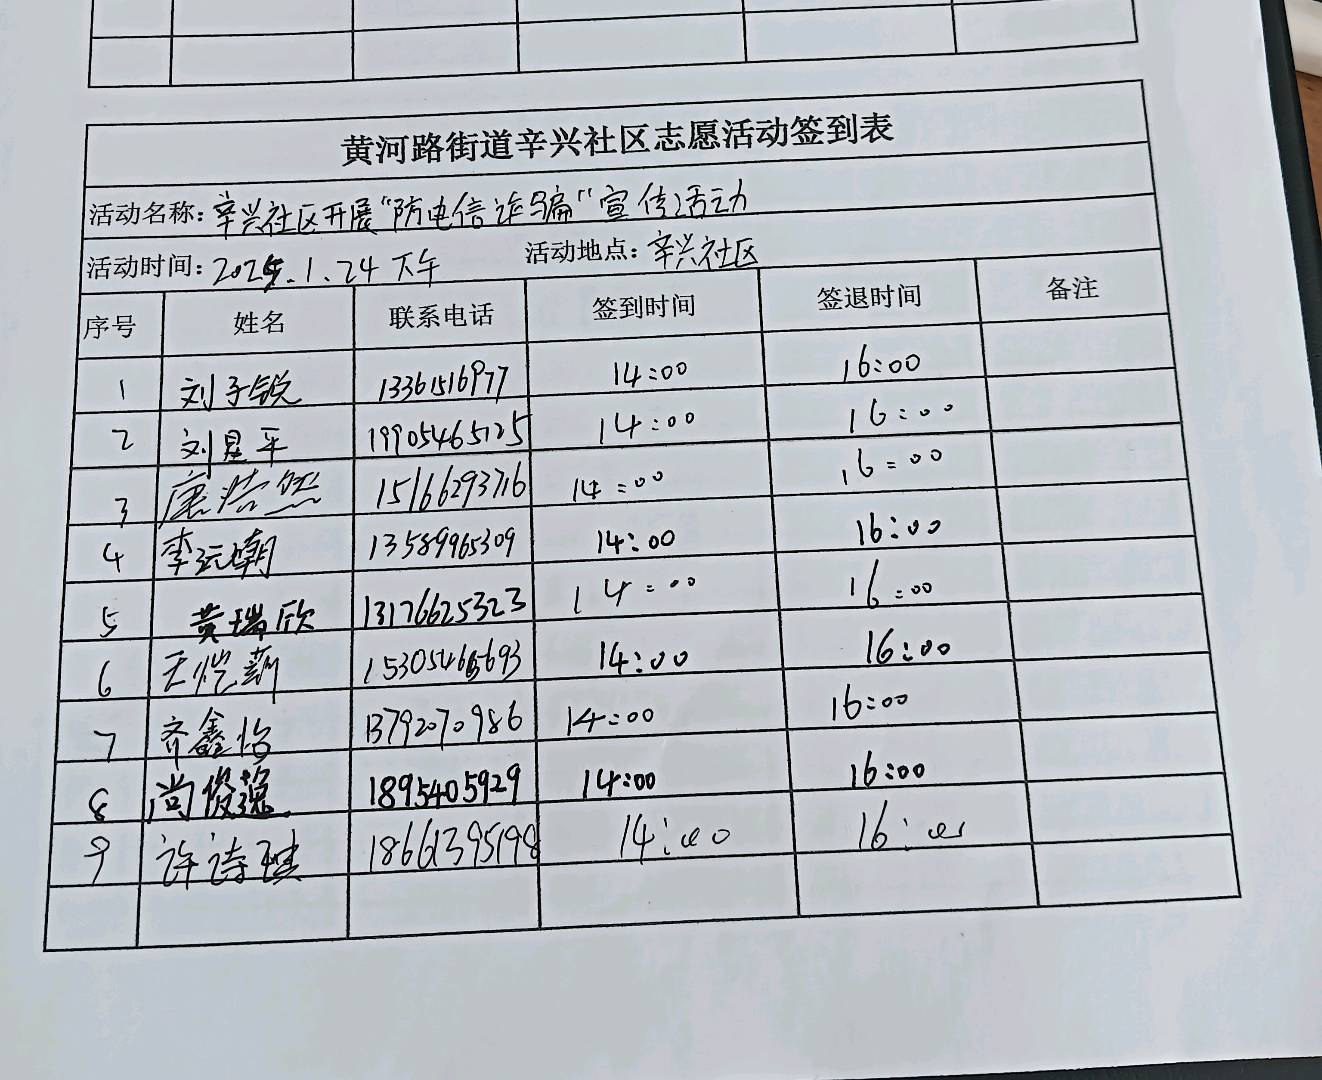 黄河路街道辛兴社区志愿活动签到表
活动名称：辛兴社区开展“防电信诈骗”宣传活动
活动时间：2025.1.24下午 活动地点：辛兴社区
序号 姓名 联系电话 签到时间 签退时间 备注
1 刘子锐 13361516977 14:00 16:00
2 刘昱平 19905465125 14:00 16:00
3 唐浩然 15166293716 14:00 16:00
4 李沅潮 13589965309 14:00 16:00
5 黄瑞欣 13176625323 14:00 16:00
6 王恺蔚 15305466693 14:00 16:00
7 齐鑫怡 13792070986 14:00 16:00
8 尚俊逸 1895405929 14:00 16:00
9 许诗琪 18661395198 14:00 16:00